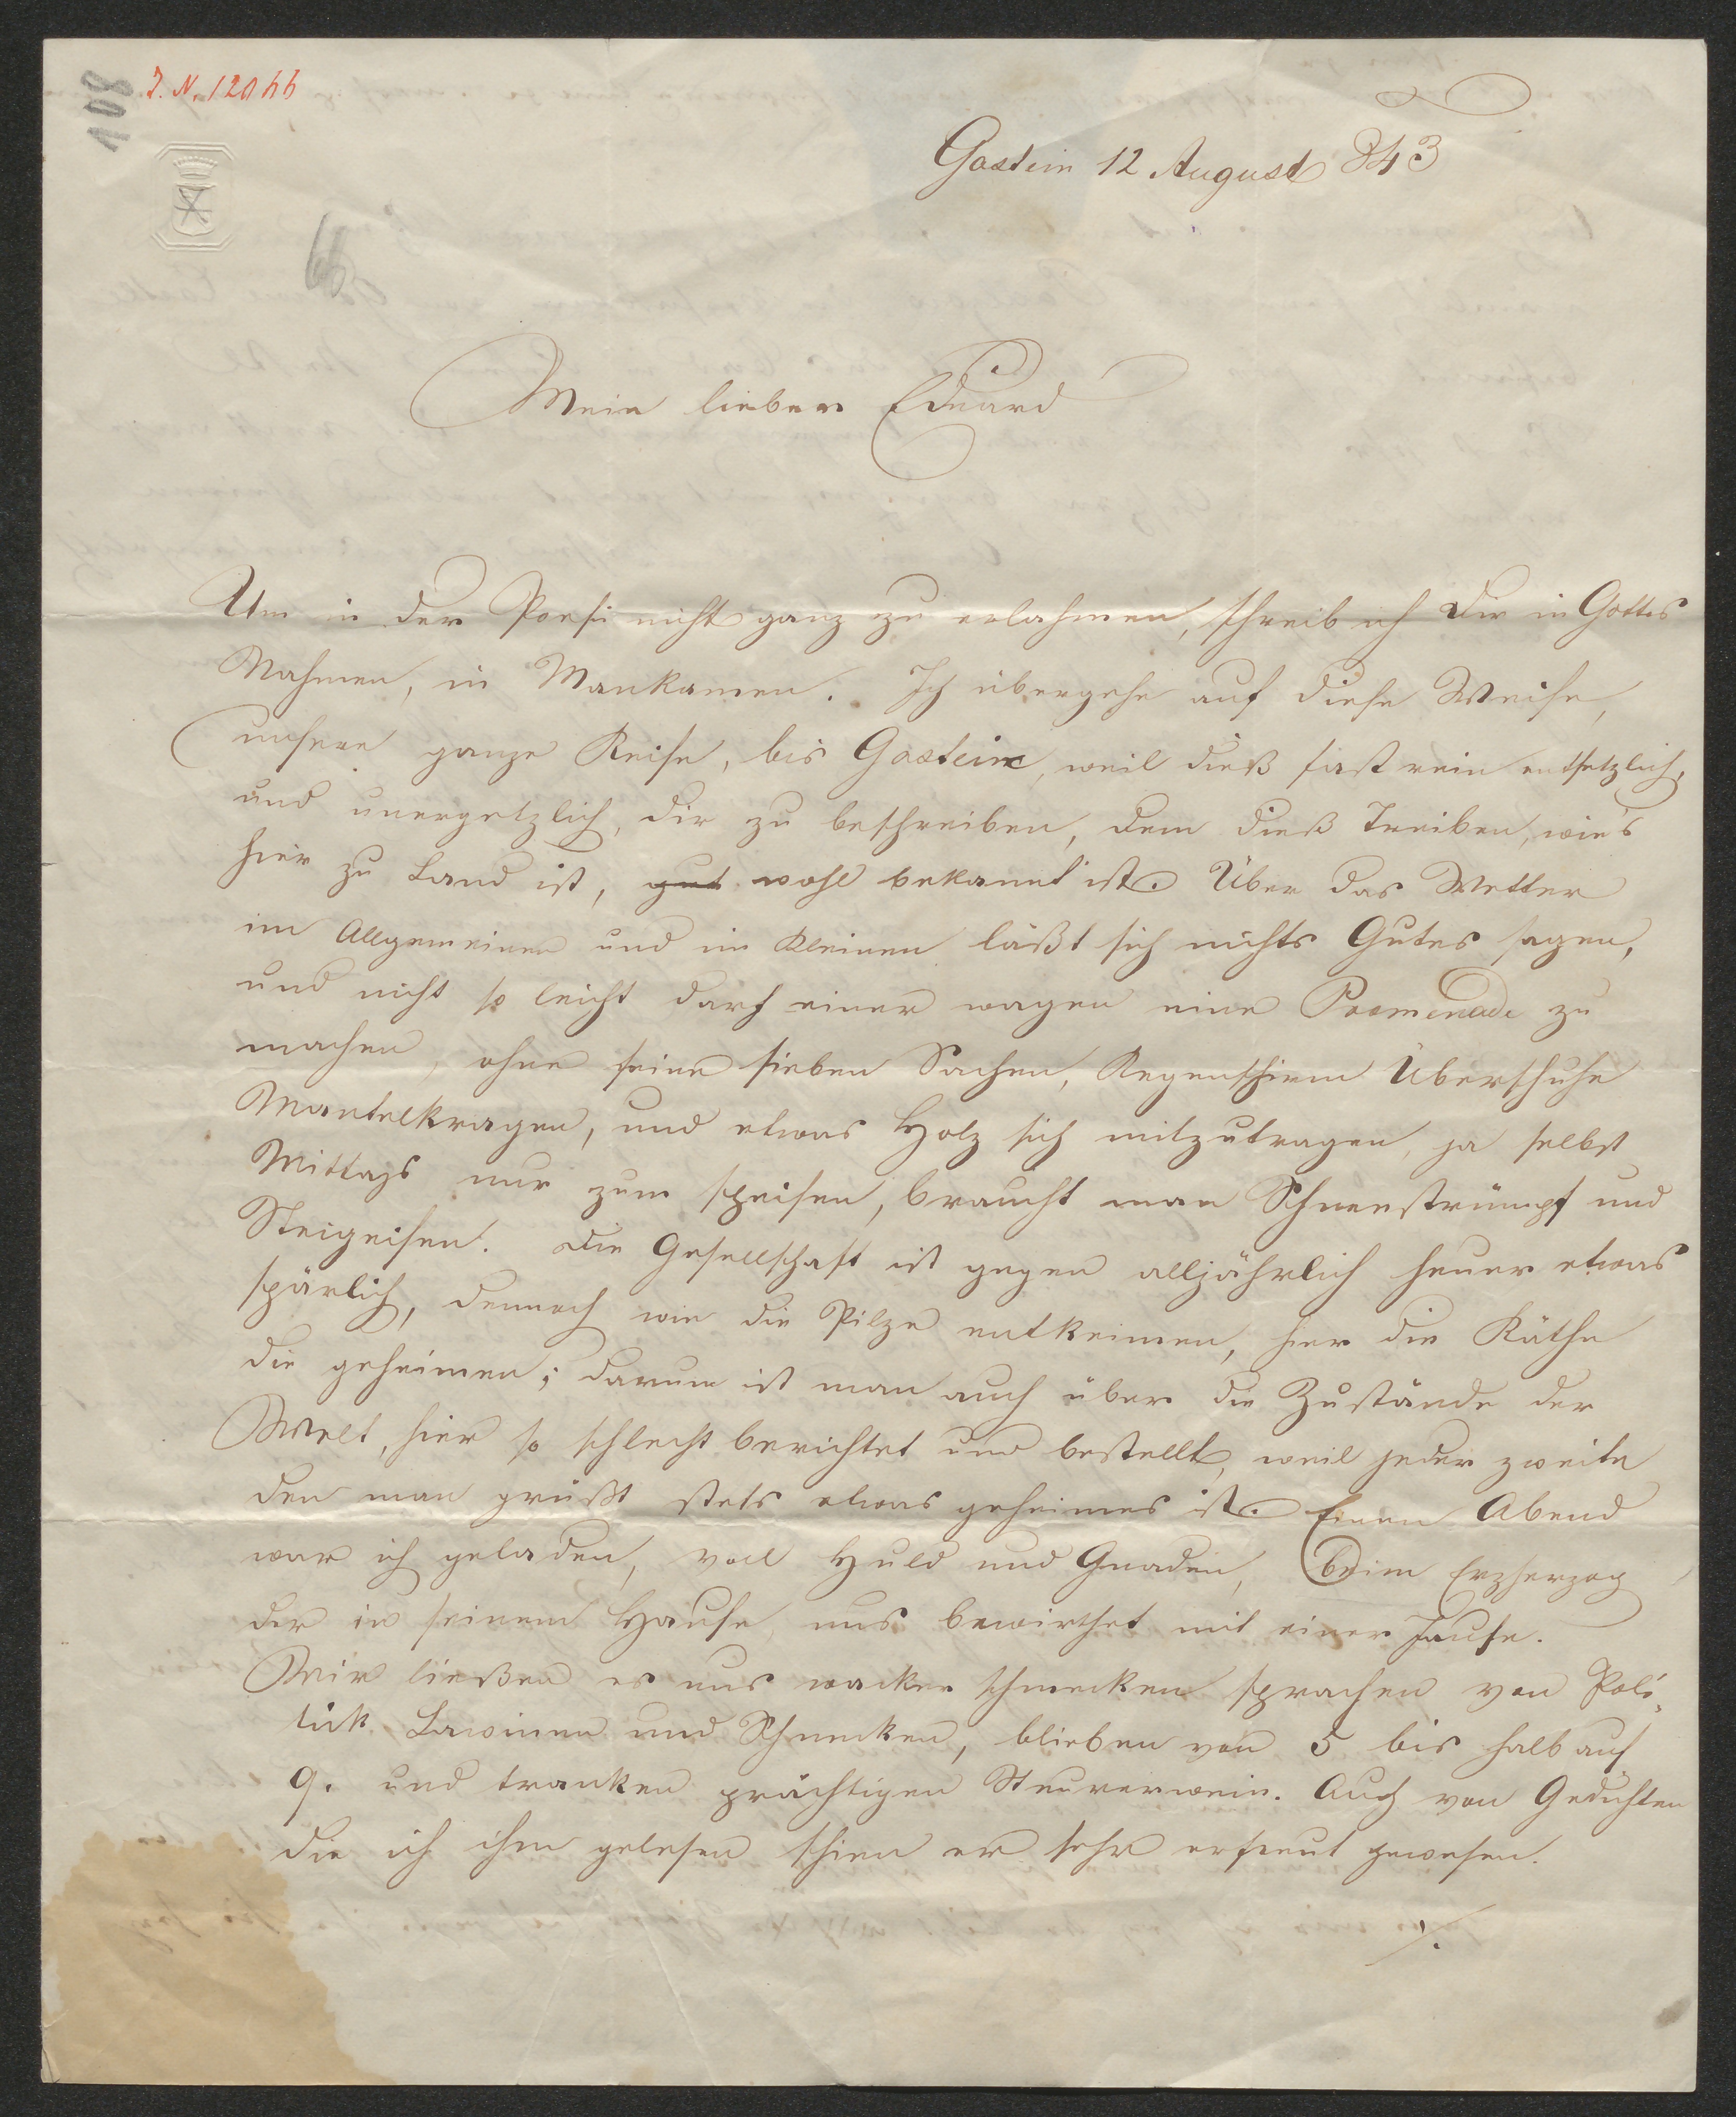 108
J. N. 12044
66
Gastein 12 August 843
Mein lieber Eduard
Um in der Poesi nicht ganz zu erlahmen, schreib ich Dir in Gottes
Nahmen, in Mankamen. Ich übergehe auf diese Weise,
unsere ganze Reise, bis Gastein, weil dieß fast rein entsetzlich,
und unergetzlich, dir zu beschreiben, dem dieß Treiben, wie's
hier zu Land ist, gut wohl bekannt ist. Über das Wetter
im Allgemeinen und im Kleinen läßt sich nichts Gutes sagen,
und nicht so leicht darf einer wagen eine Promenade zu
machen, ohne seine sieben Sachen, Regenschirm Überschuhe
Mantelkragen, und etwas Holz sich mitzutragen, ja selbst
Mittags nur zum speisen, braucht man Schneestrümpf und
Steigeisen. Die Gesellschaft ist gegen alljährlich heuer etwas
spärlich, dennoch wie die Pilze entkeimen, hier die Räthe
die geheimen; darum ist man auch über die Zustände der
Welt, hier so schlecht berichtet und bestellt, weil jeder zweite
den man grüßt stets etwas geheimes ist. Einen Abend
war ich geladen, voll Huld und Gnaden, beim Erzherzog
der in seinem Hause, uns bewirthet mit einer Jause.
Wir ließen es uns wacker schmecken sprachen von Poli-
tik Lawinen und Schnecken, blieben von 5 bis halb auf
9. und tranken prächtigen Steurerwein. Auch von Gedichten
die ich ihm gelesen schien er sehr erfreut gewesen.
./.